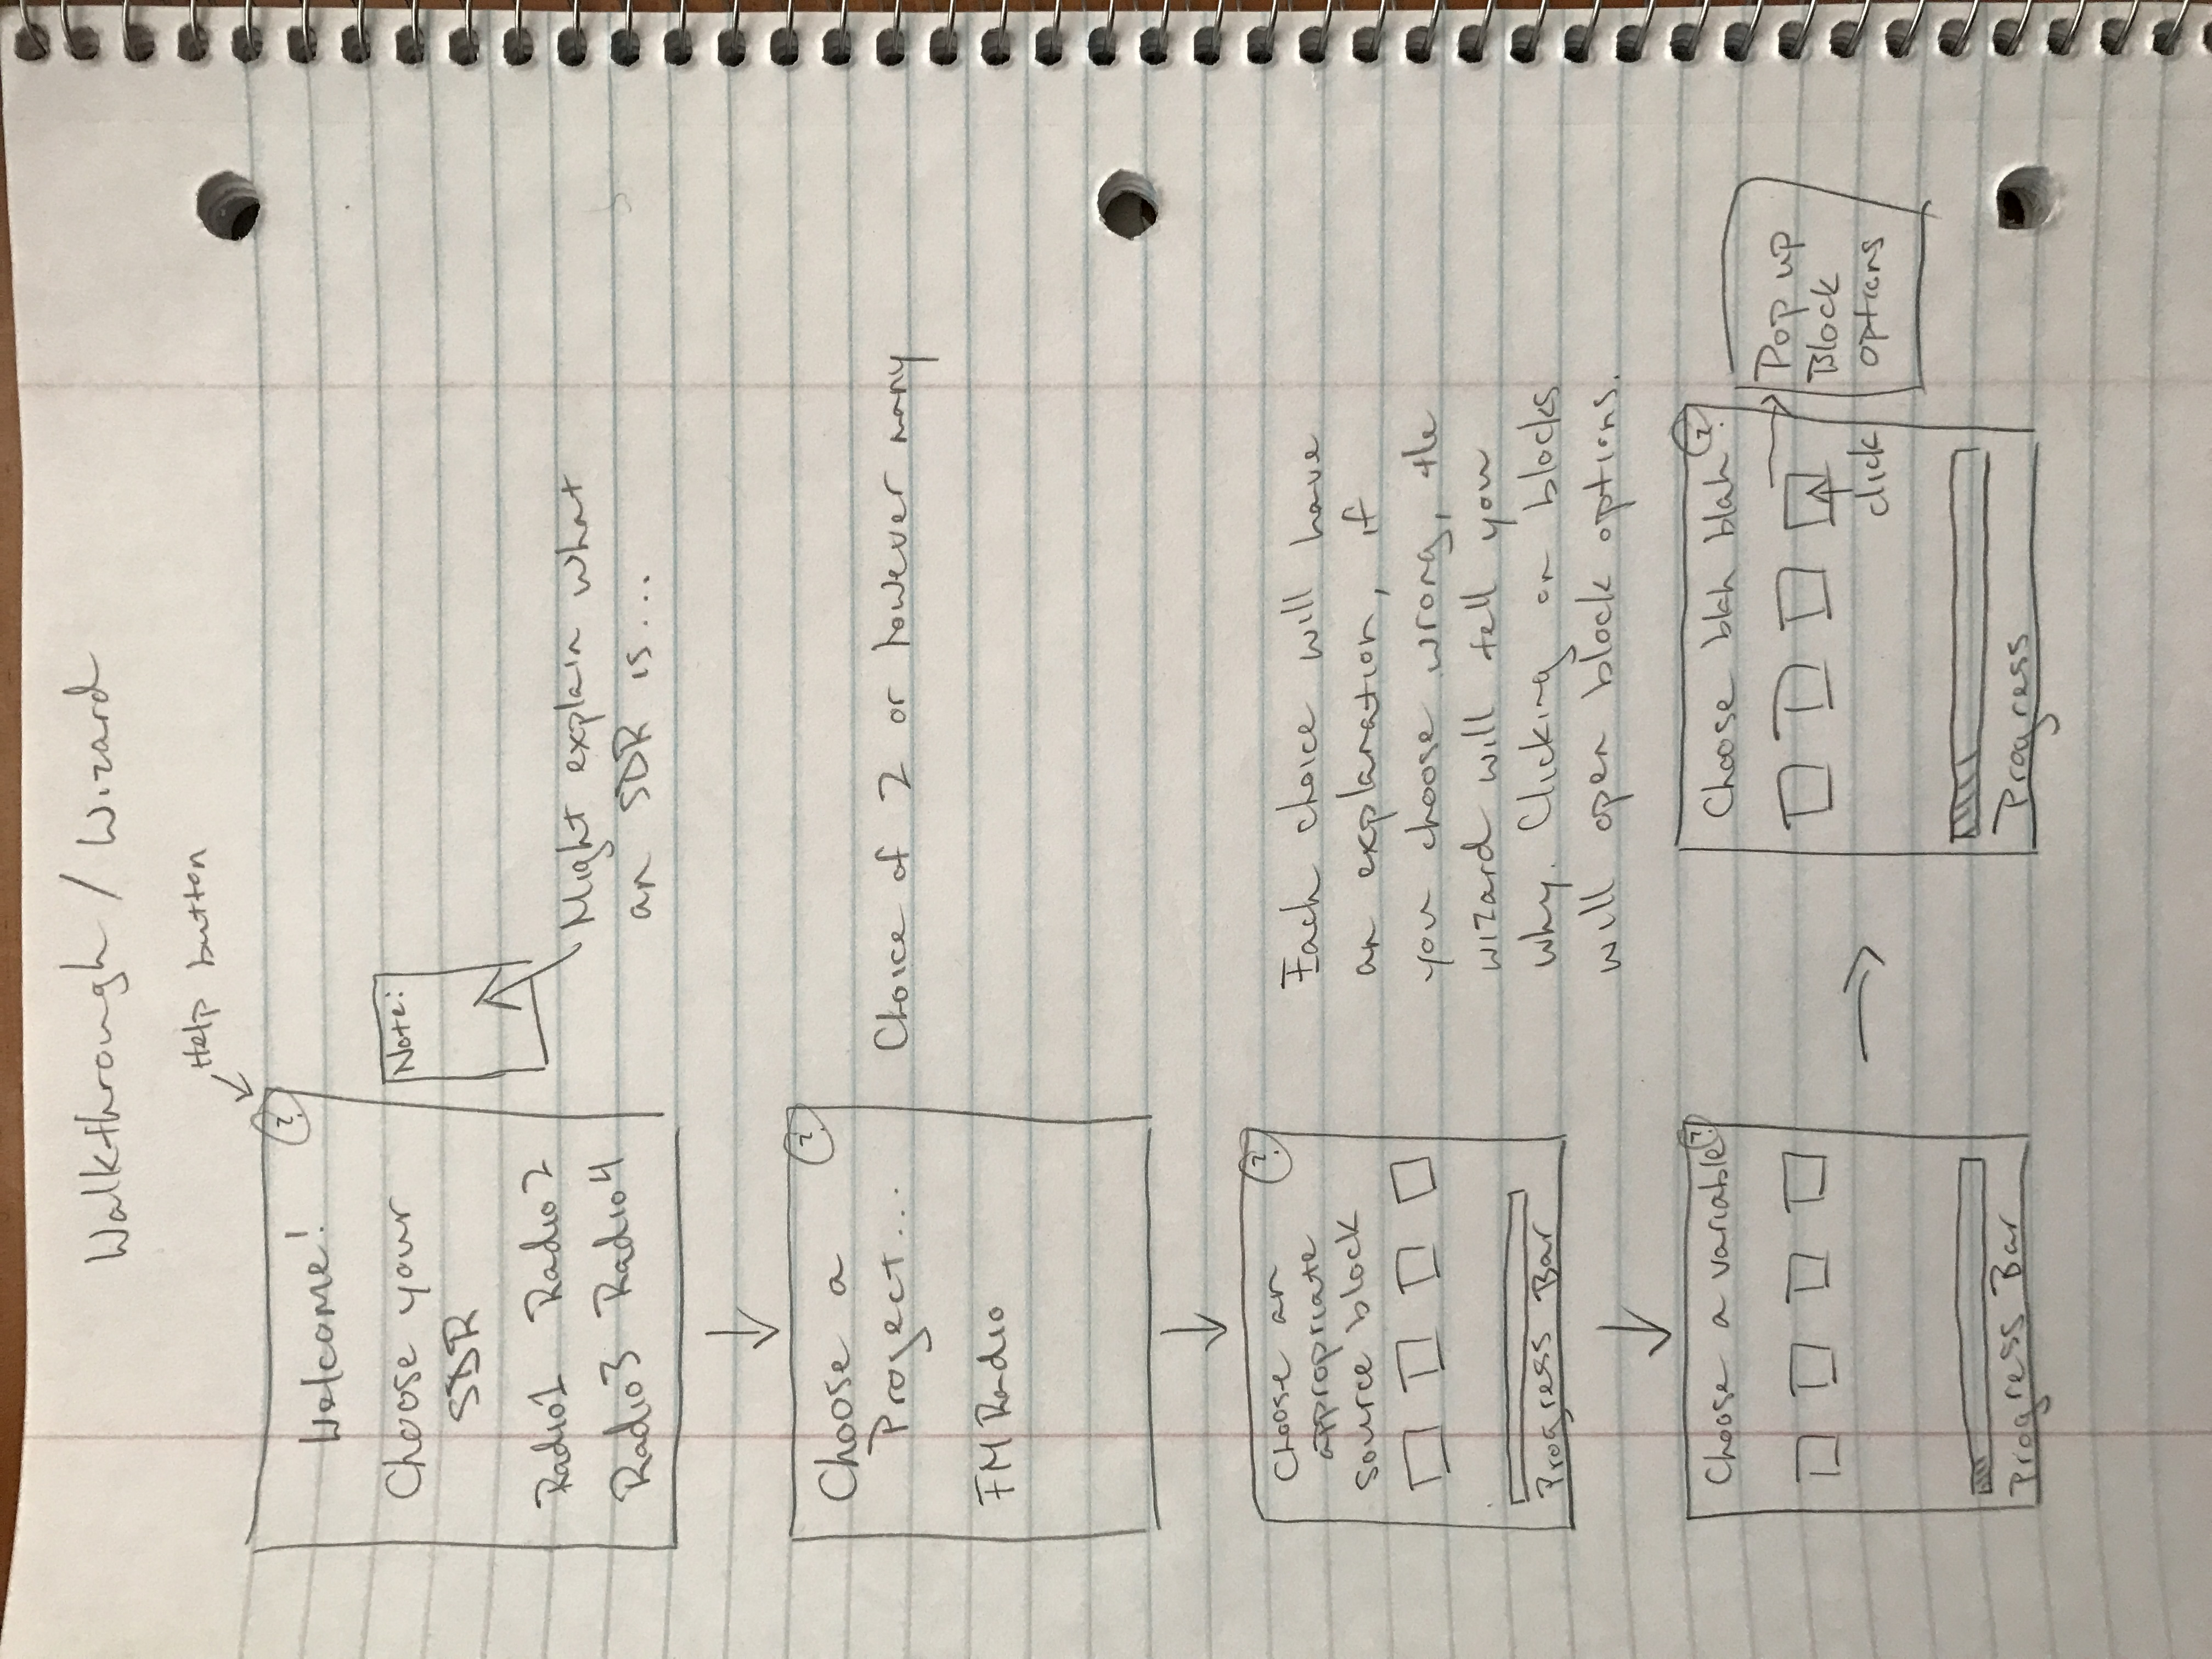 Walkthrough / Wizard
Help button
?
Welcome!
Choose your
SDR
Radio1 Radio2
Radio3 Radio4
Note:
Might explain what
an SDR is...
?
Choose a
Project...
FM Radio
Choice of 2 or however many
?
Choose an
appropriate
source block
Progress Bar
Each choice will have
an explanation, if
you choose wrong, the
wizard will tell you
why. Clicking on blocks
will open block options.
?
Choose a variable
Progress Bar
?
Choose blah blah
click
Progress
Pop up
Block
options